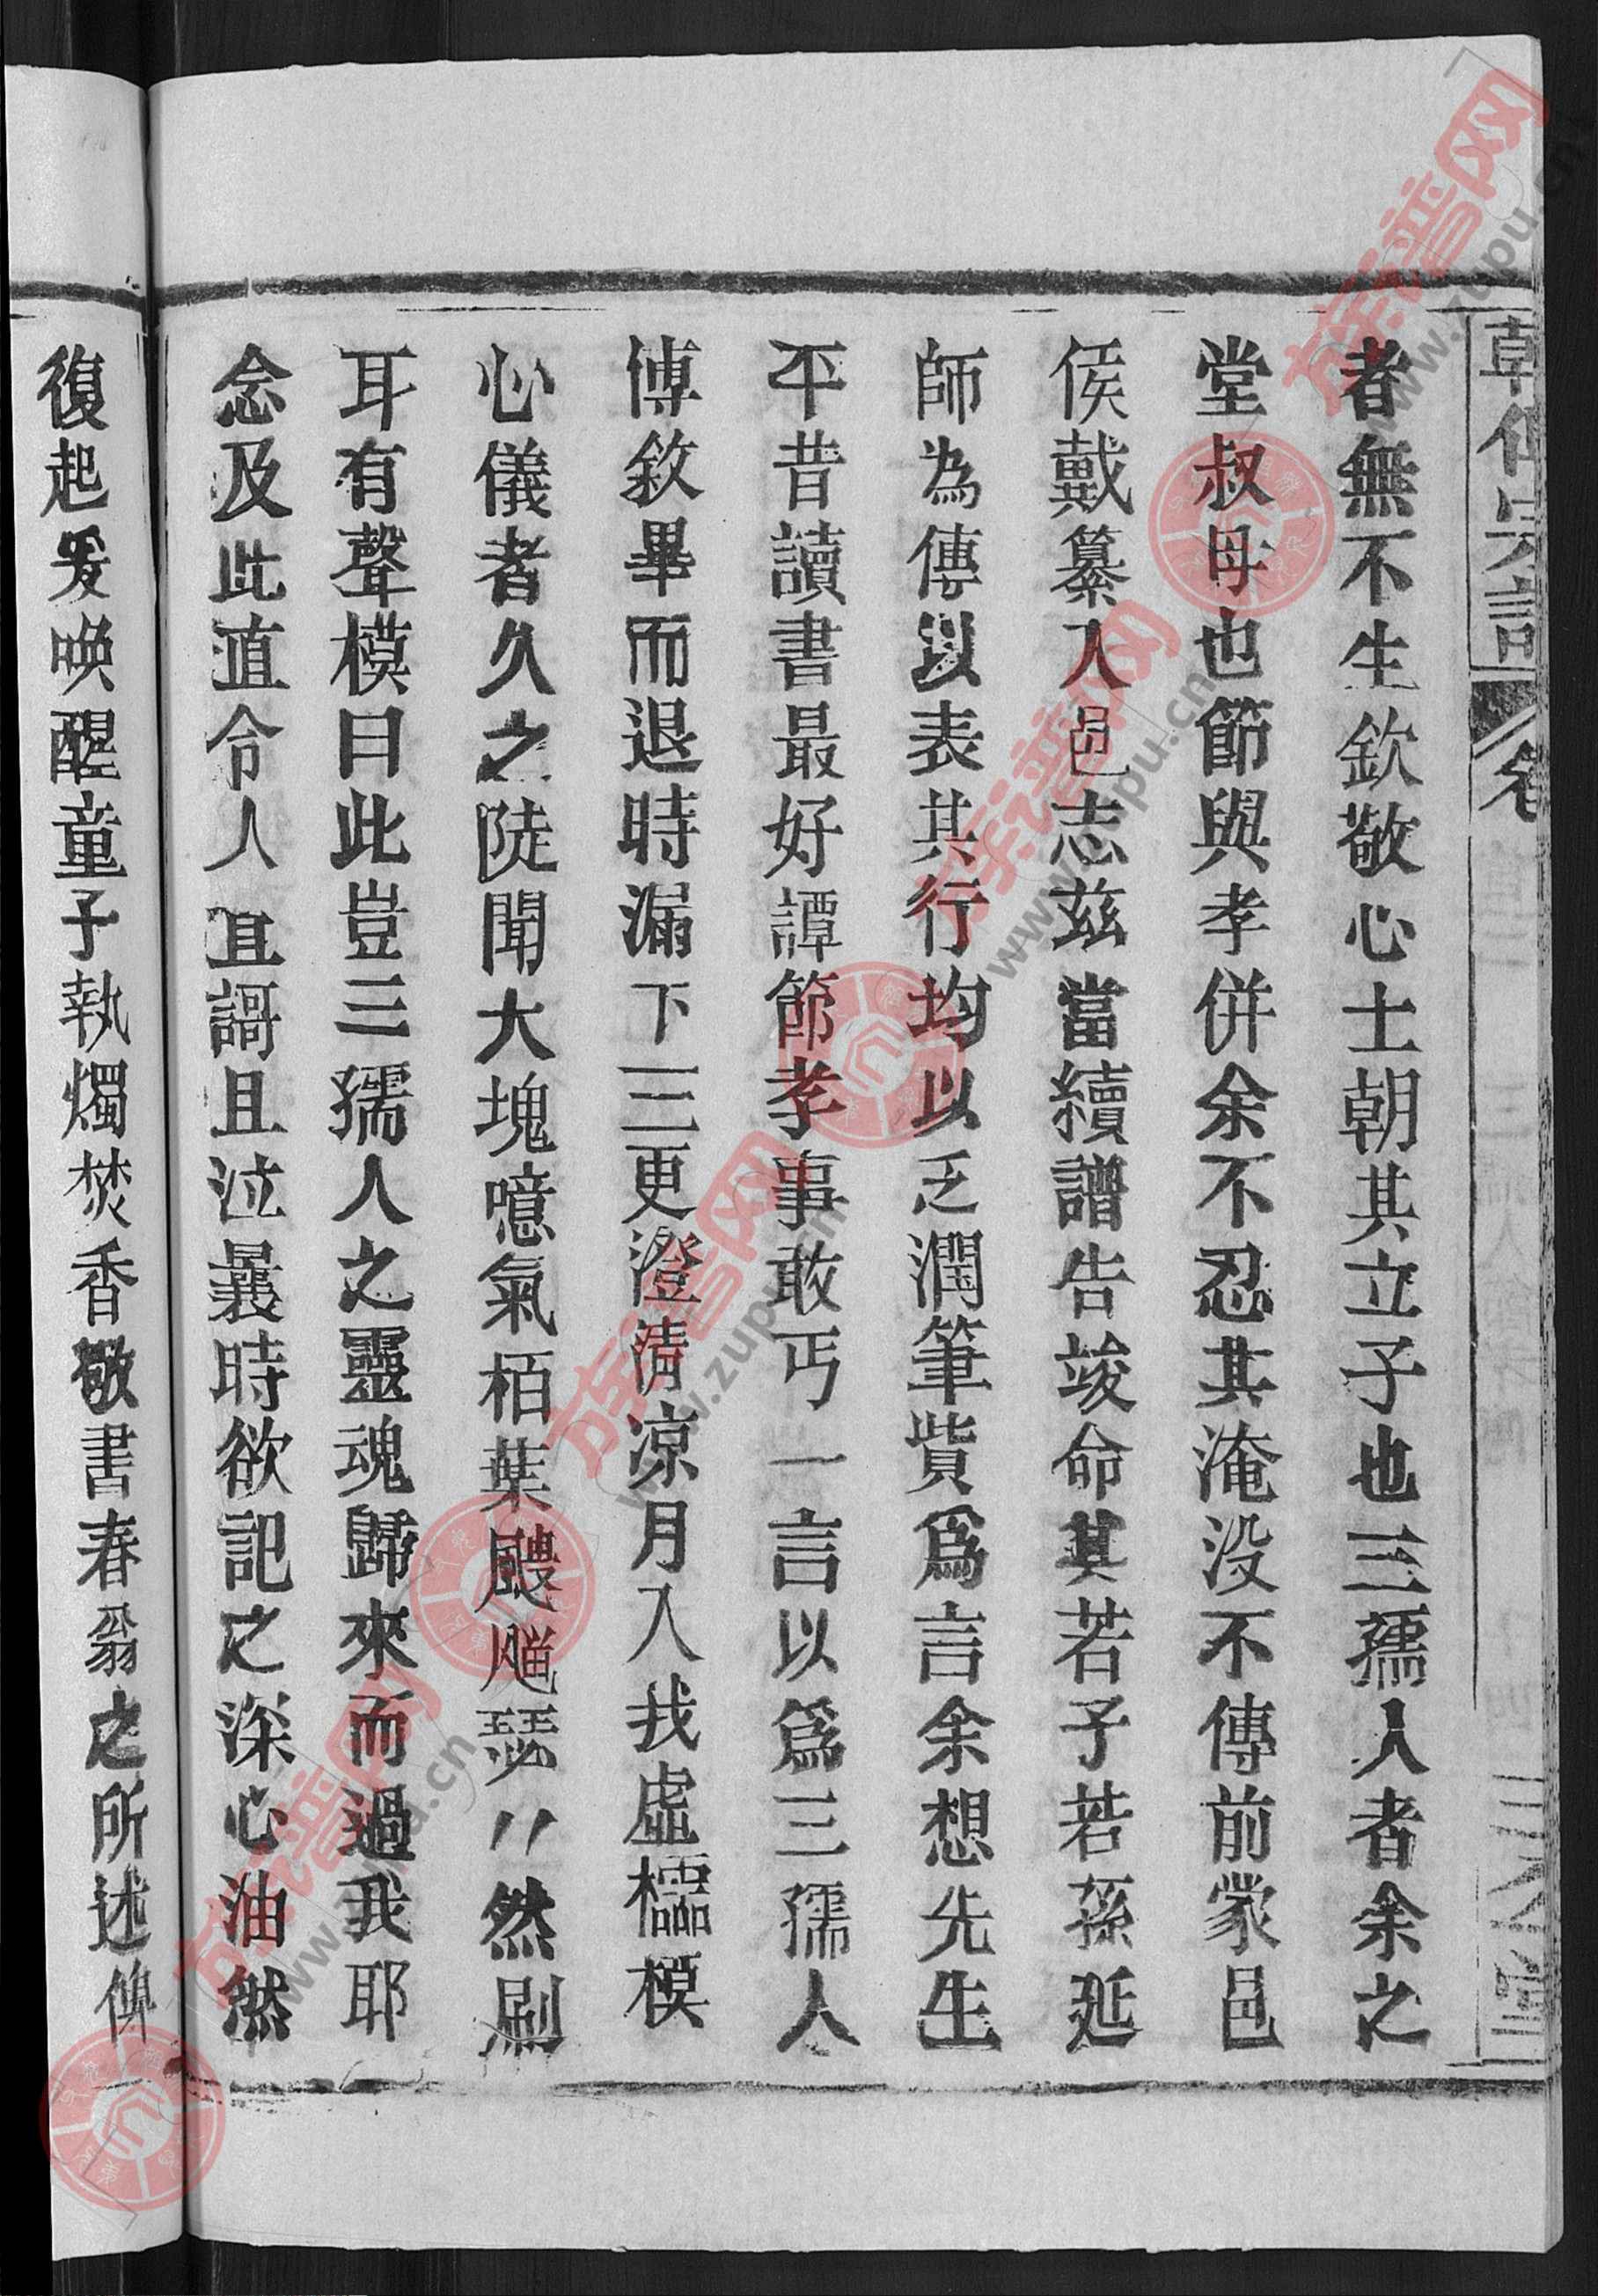 者無不生欽敬心士朝其立子也三孺人者余之
堂叔母也節與孝併余不忍其淹没不傳前蒙邑
侯戴纂入邑志茲當續譜告竣命其若子若孫延
師為傳以表其行均以乏潤筆貲爲言余想先生
平昔讀書最好譚節孝事敢丐一言以爲三孺人
傳敘畢而退時漏下三更澄清凉月入我虛櫺模
心儀者久之陡聞大塊噫氣栢葉飂飀瑟〃然刷
耳有聲模曰此豈三孺人之靈魂歸來而過我耶
念及此直令人且謌且泣曩時欲記之深心油然
復起爰喚醒童子執燭焚香敬書春翁之所述俾
族谱网
www.zupu.cn
族谱网
www.zupu.cn
族谱网
www.zupu.cn
族谱网
www.zupu.cn